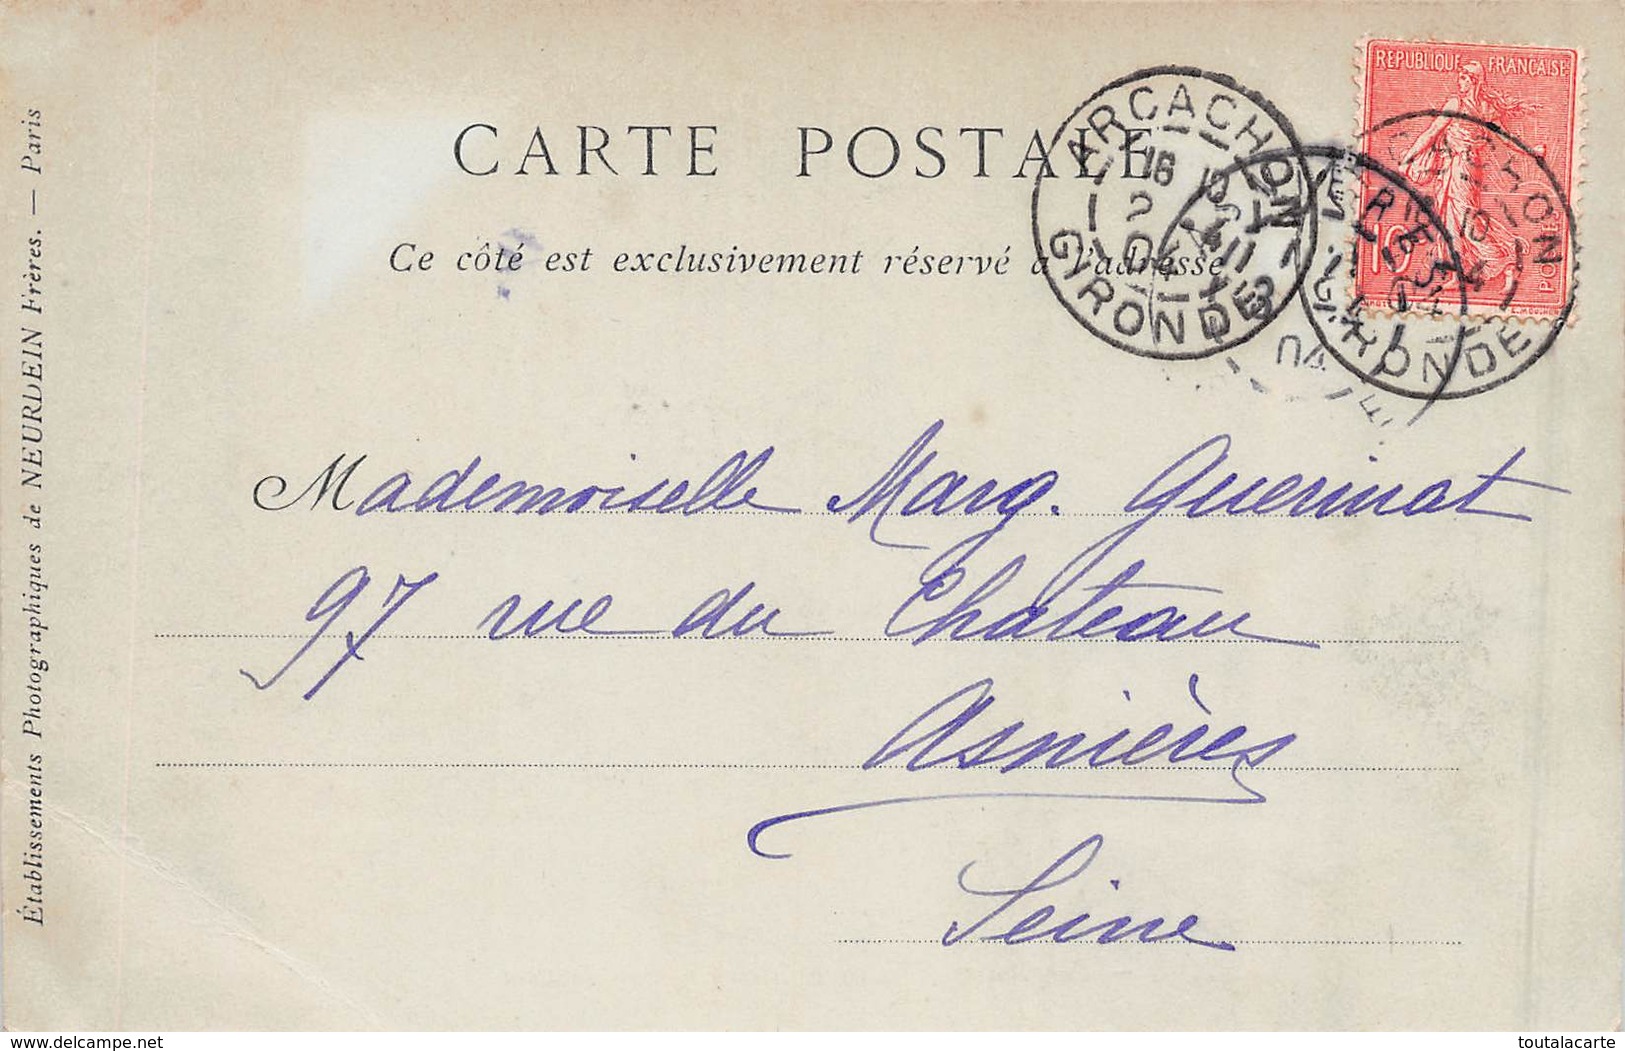 CARTE POSTALE
Ce côté est exclusivement réservé à l'adresse
REPUBLIQUE FRANÇAISE
10
ARCACHON
16
GIRONDE
GIRONDE
04
Mademoiselle Marg. Guerinat
97 rue du Chateau
Asnières
Seine
Établissements Photographiques de NEURDEIN Frères. — Paris
delcampe.net
toutalacarte